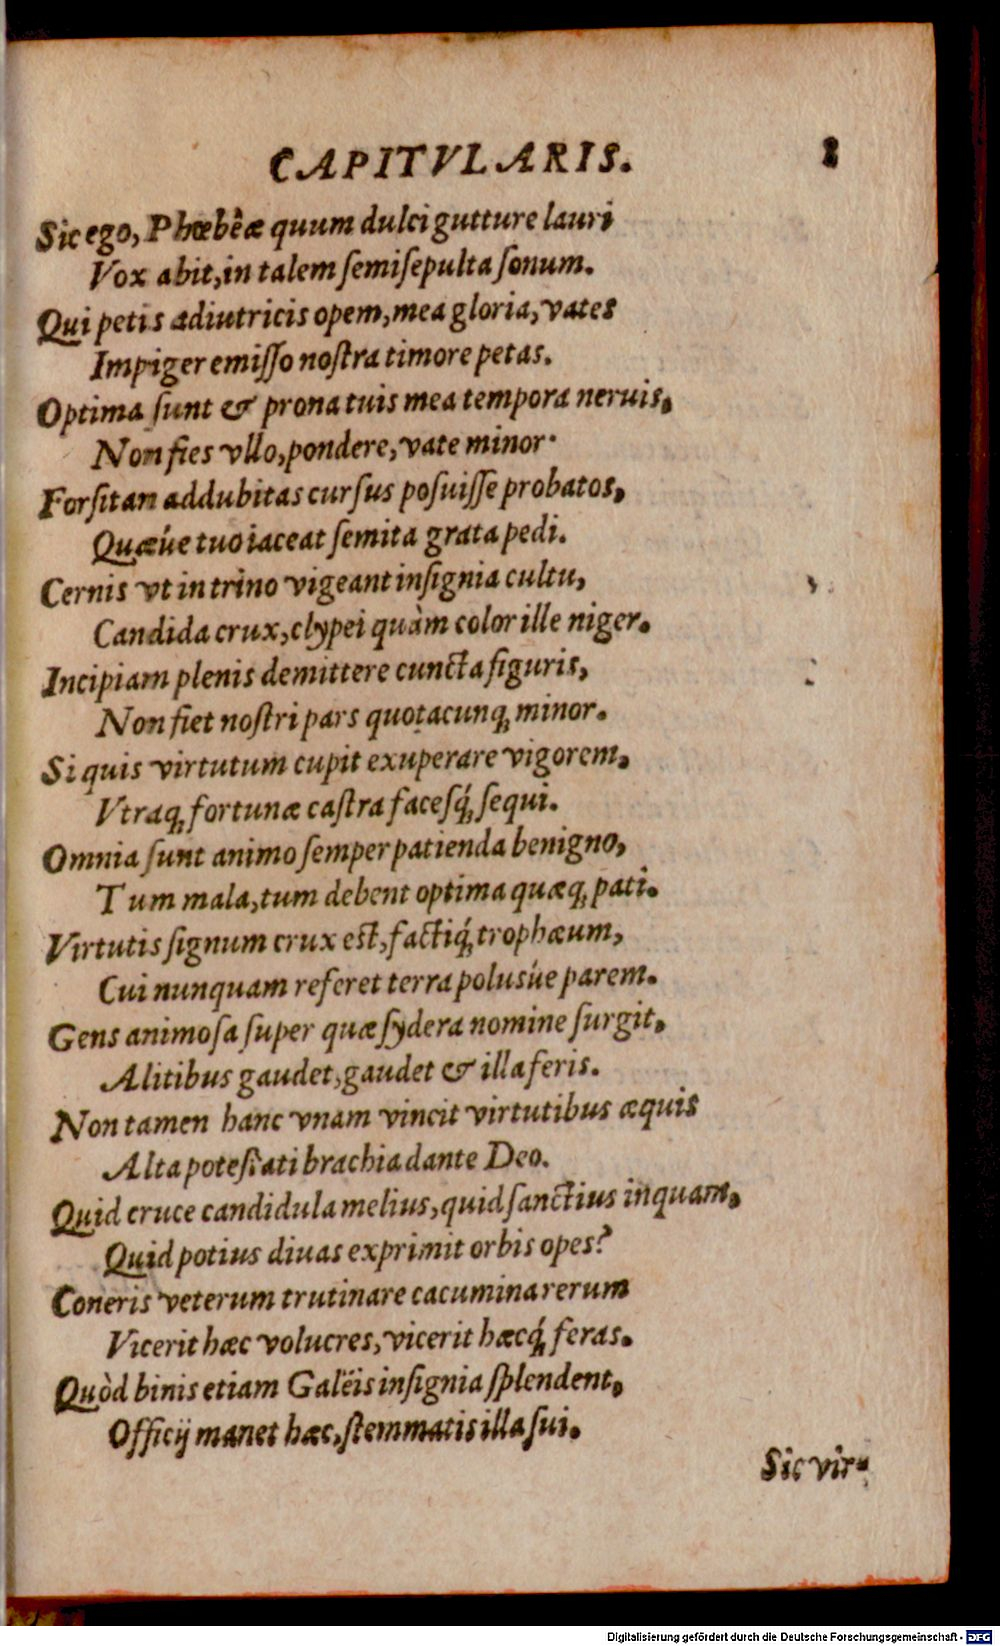 CAPITVLARIS. 8
Sic ego, Phœbêæ quum dulci gutture lauri
Vox abit, in talem ſemiſepulta ſonum.
Qui petis adiutricis opem, mea gloria, vates
Impiger emiſſo noſtra timore petas.
Optima ſunt & prona tuis mea tempora neruis,
Non fies vllo, pondere, vate minor.
Forſitan addubitas curſus poſuiſſe probatos,
Quæúe tuo iaceat ſemita grata pedi.
Cernis vt in trino vigeant inſignia cultu,
Candida crux, clypei quàm color ille niger.
Incipiam plenis demittere cuncta figuris,
Non fiet noſtri pars quotacunq; minor.
Si quis virtutum cupit exuperare vigorem,
Vtraq; fortunæ caſtra faceſq́; ſequi.
Omnia ſunt animo ſemper patienda benigno,
Tum mala, tum debent optima quæq; pati.
Virtutis ſignum crux eſt, factiq́; trophæum,
Cui nunquam referet terra poluſúe parem.
Gens animoſa ſuper quæ ſydera nomine ſurgit,
Alitibus gaudet, gaudet & illa feris.
Non tamen hanc vnam vincit virtutibus æquis
Alta poteſtati brachia dante Deo.
Quid cruce candidula melius, quid ſanctius inquam,
Quid potius diuas exprimit orbis opes?
Coneris veterum trutinare cacumina rerum
Vicerit hæc volucres, vicerit hæcq́; feras.
Quòd binis etiam Galëis inſignia ſplendent,
Officij manet hæc, ſtemmatis illa ſui.
Sic vir-
Digitalisierung gefördert durch die Deutsche Forschungsgemeinschaft - DFG